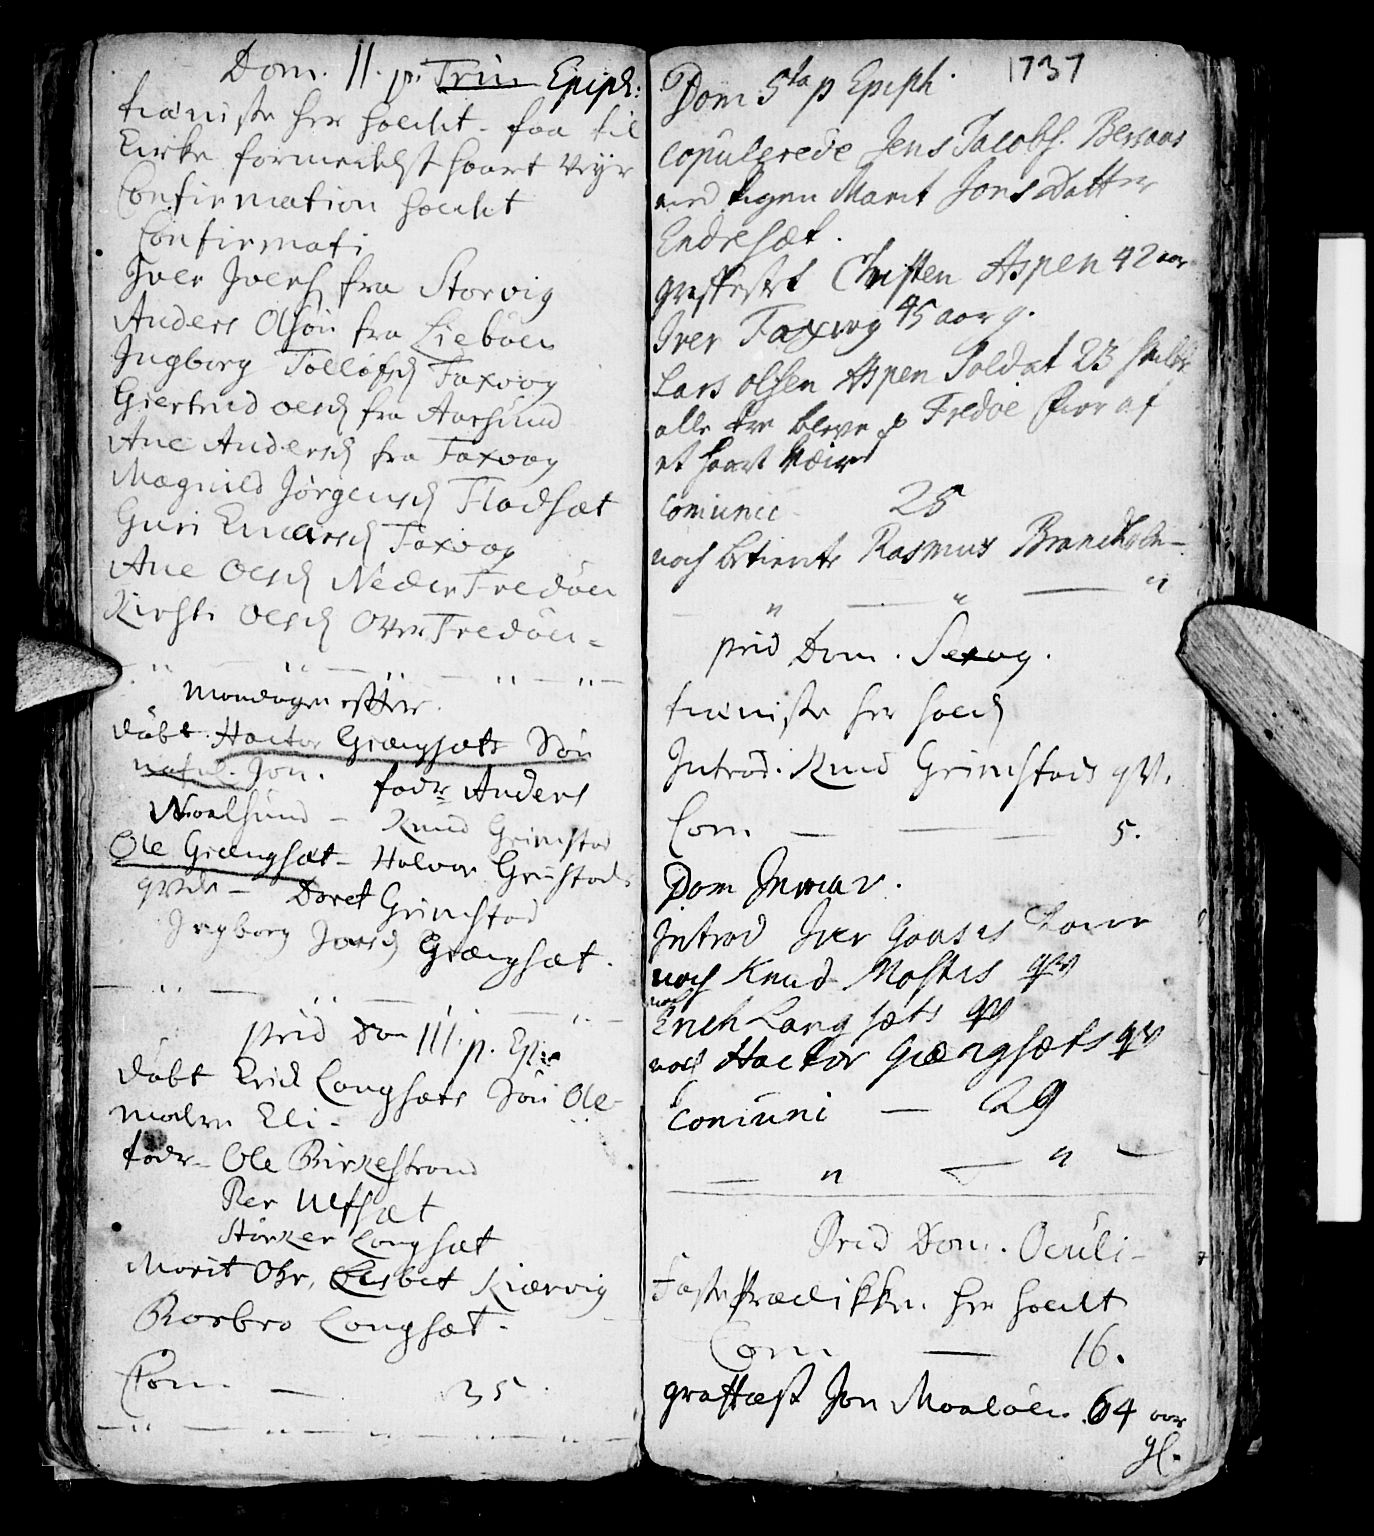 Dom. II. p. Trin Epiph:
tieniste her holdit. faa til
Kirke formedelst haart veyr
Confirmation holdet
Confirmati
Iver Ivers. fra Storvig
Anders Olsøn fra Liebøen
Ingborg Tollofsd Faxvog
Giertrud Olesd fra Aarsund
Ane Andersd fra Faxvog
Magnild Jørgensd Fladsæt
Guri Einarsd Faxvog
Ane Olesd Neder Fredøen
Kirsti Olesd Over Fredøen -
Mondagen effter.
døbt Hactor Giængsæts Søn
nafnl. Jon. fadr Anders
Woalsund - Knud Grimstad
Ole Giængsæt - Halvor Grimstads
qvde - Doret Grimstad
Ingborg Jonsd Giængsæt.
prid Dom III. p. Ep:
døbt Erich Langsæts Søn Ole
modren Eli -
fadr - Ole Birkestrand
Per Ulfsæt
Størker Longsæt
Morit Ohr, Lisbet Kiærvig
Borbro Longsæt -
Com. — 35.
1737
Dom 5ta p Epiph.
copulerede Jens Jacobs. Bersaas
med pigen Marit Jons Datter
Endresæt.
græffæstet Christen Aspen 42 aar
Iver Faxvog 45 aar g.
Lars Olsen Aspen Soldat 23
alle tre bleve p Fredøe af
et haart væir
Comunic 25
noch betiente Rasmus
prid Dom. Sexag.
tieniste her hold
Introd. Knud Grimstads qV.
Com — 5.
Dom Invocav.
Introd Iver Gaases Kone
noch Knud Mostes qv
noch
Erich Langsæts qv
noch Hactor Giængsæts qv
Comuni — 29
Prid Dom. Oculi -
Faste Prædikken her holdt
Com — 16.
graffæst Jon Moaløen. 64 aar
gl.